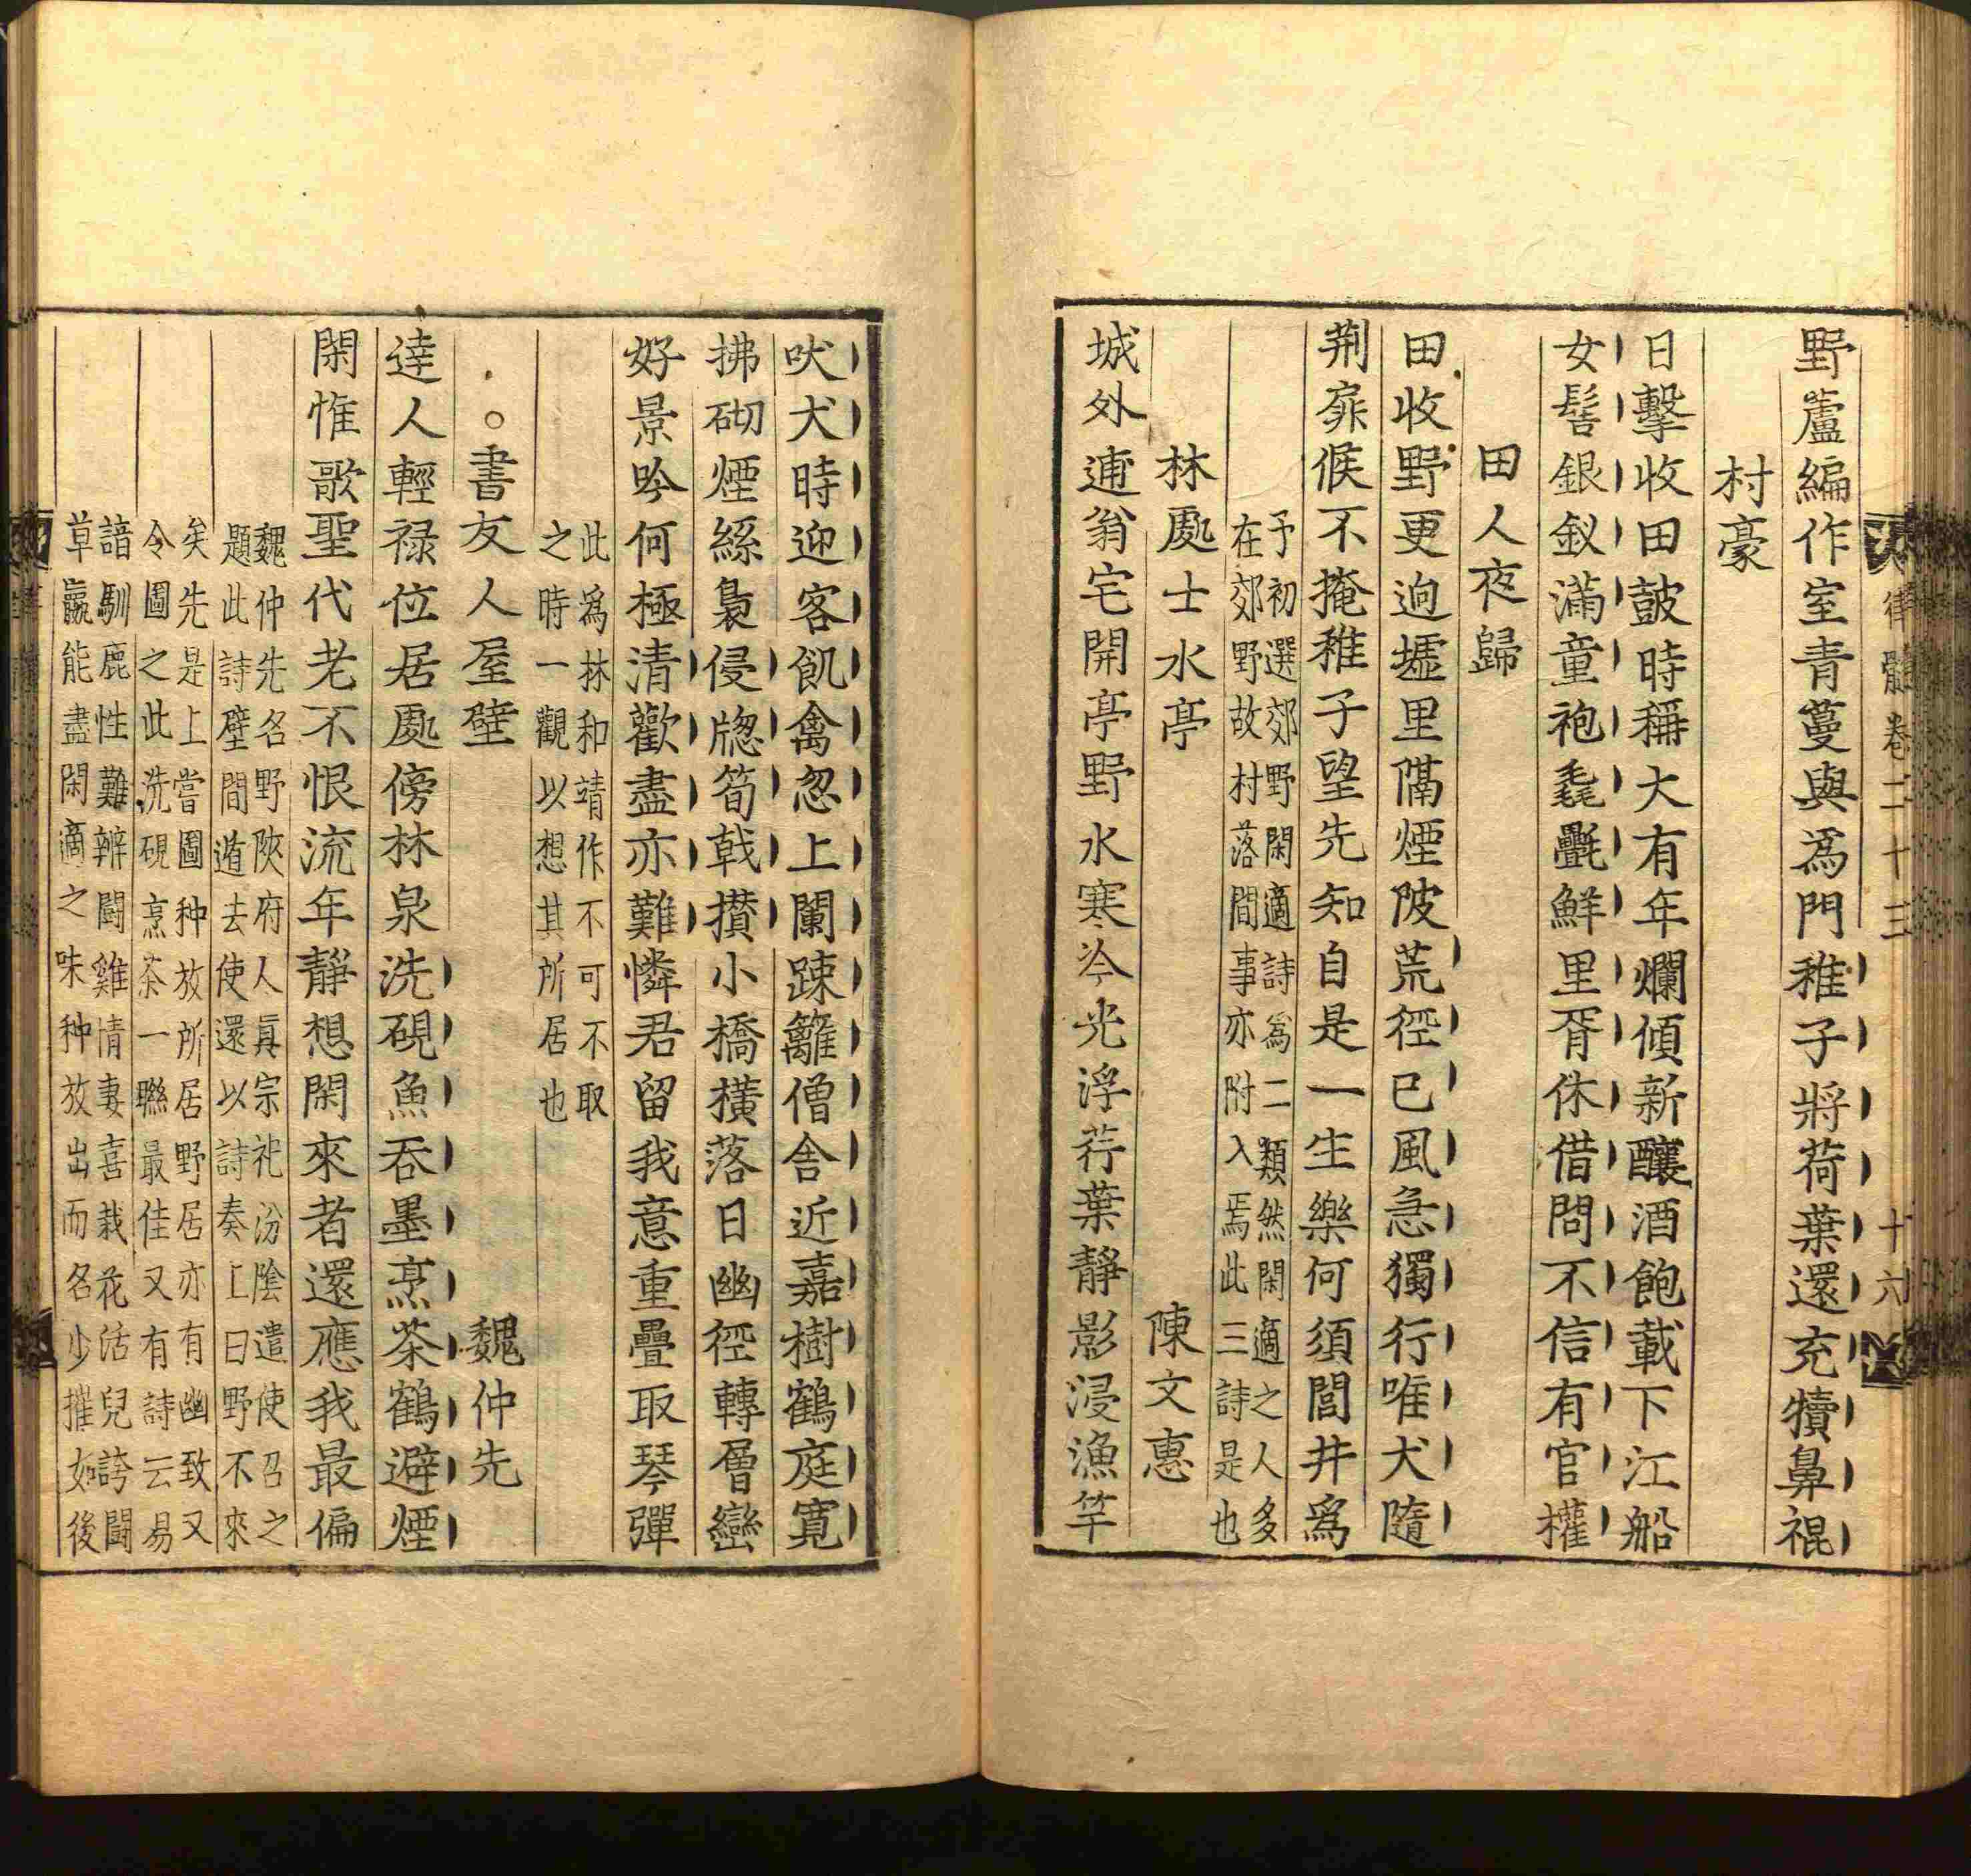 律髓卷二十三
十六
野蘆編作室青蔓與爲門稚子將荷葉還充犢鼻裩
村豪
日擊收田鼓時稱大有年爛傾新釀酒飽載下江船
女髻銀釵滿童袍毳㲲鮮里胥休借問不信有官權
田人夜歸
田收野更逈墟里隔煙陂荒徑已風急獨行唯犬隨
荆扉候不掩稚子望先知自是一生樂何須閭井爲
予初選郊野閑適詩爲二類然閑適之人多
在郊野故村落間事亦附入焉此三詩是也
林處士水亭 陳文惠
城外逋翁宅開亭野水寒冷光浮荇葉靜影浸漁竿
吠犬時迎客飢禽忽上闌踈籬僧舍近嘉樹鶴庭寬
拂砌煙絲裊侵牕筍戟攅小橋橫落日幽徑轉層巒
好景吟何極清歡盡亦難憐君留我意重疊取琴彈
此爲林和靖作不可不取
之時一觀以想其所居也
○書友人屋壁 魏仲先
達人輕禄位居處傍林泉洗硯魚吞墨烹茶鶴避煙
閑惟歌聖代老不恨流年靜想閑來者還應我最偏
魏仲先名野陝府人真宗祀汾陰遣使召之
題此詩壁間遁去使還以詩奏上曰野不來
矣先是上嘗圖种放所居野居亦有幽致又
令圖之此洗硯烹茶一聯最佳又有詩云易
諳馴鹿性難辨鬬雞情妻喜栽花活兒誇鬬
草羸能盡閑適之味种放出而名少摧如後